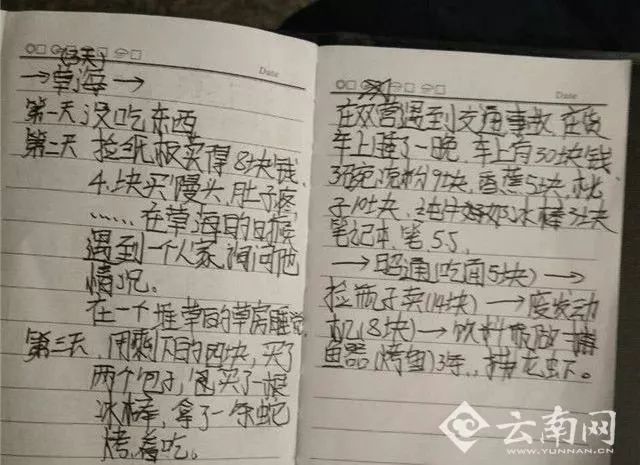 Date
(3天)
→草海→
第一天 没吃东西
第二天 捡纸板卖得8块钱,
4块买馒头,肚子疼,
……在草海的时候
遇到一个人家,询问他
情况。
在一个堆草的草房睡觉
第三天,用剩下的四块,买了
两个包子,包买了一根
冰棒,拿了一条蛇
烤,着吃。
Date
在双营遇到交通事故,在货
车上睡了一晚,车上有30块钱,
3碗凉粉9块,香蕉5块,桃
子10块,冰棒3块
笔记本,笔,5.5,
→昭通(吃面5块)→
捡瓶子卖(14块)→废发动
机(8块)→饮料瓶做一捕
鱼器(烤鱼)3条,捕龙虾。
云南网
WWW.YUNNAN.CN